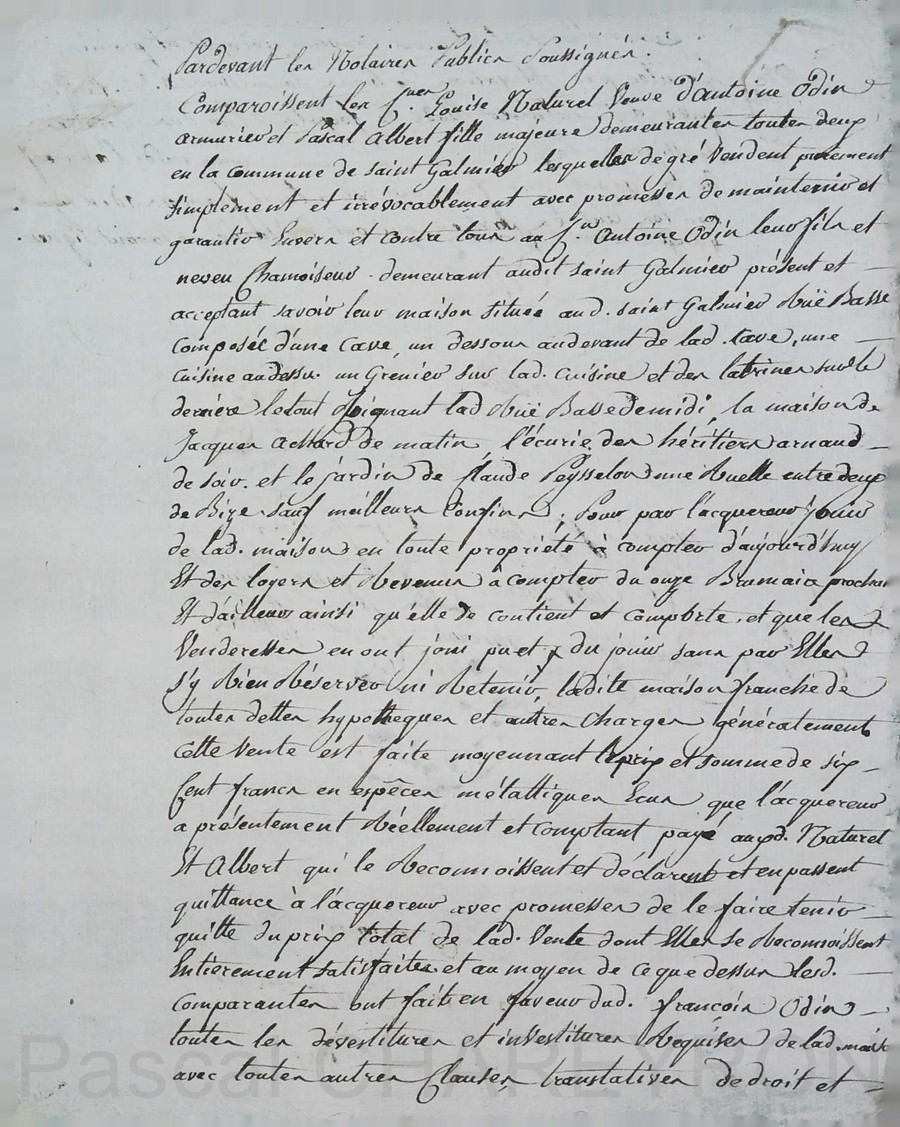 Pardevant les Notaires Publics Soussignés.
Comparoissent les C.nes Louise Naturel Veuve d'Antoine Odin
armurier et Pascal Albert fille majeure demeurantes toutes deux
en la commune de saint Galmier lesquelles de gré Vendent purement
simplement et irrévocablement avec promesses de maintenir et
garantir Envers et contre tous au C.n Antoine Odin leur fils et
neveu Chamoiseur demeurant audit saint Galmier présent et
acceptant savoir leur maison située aud. saint Galmier Ruë Basse
Composée d'une Cave, un dessous audevant de lad. Cave, une
Cuisine audessu. un Grenier sur lad. Cuisine et des latrines sur le
derrière le tout Joignant lad Ruë Basse de midi, la maison de
Jacques Achard de matin l'écurie des héritiers arnaud
de soir. et le jardin de Claude Peysselon une Ruelle entre deux
de Bize sauf meilleurs Confins. Pour par l'acquereur jouir
de lad. maison en toute propriété à compter d'aujourd'huy
Et des loyers et Revenus à compter du onze Brumaire prochain
Et d'ailleurs ainsi qu'elle se contient et comporte, et que les
Venderesses en ont joui pu et du jouir sans par Elles
s'y Rien Réserver ni Retenir, ladite maison franche de
toutes dettes hypotheques et autres Charges généralement
Cette Vente est faite moyennant le prix et somme de six
Cent francs en espèces métalliques Ecus que l'acquereur
a présentement Réellement et Comptant payé auxd. Naturel
Et Albert qui le Reconnoissent et déclarent et en passent
quittance à l'acquereur avec promesses de le faire tenir
quitte du prix total de lad. Vente dont Elles se Reconnoissent
Entièrement satisfaites et au moyen de ce que dessus lesd.
Comparantes ont fait en faveur dud. françois Odin
toutes les dévestitures et investitures Requises de lad. mais
avec toutes autres Clauses translatives de droit et
Pascal CHAREYRON